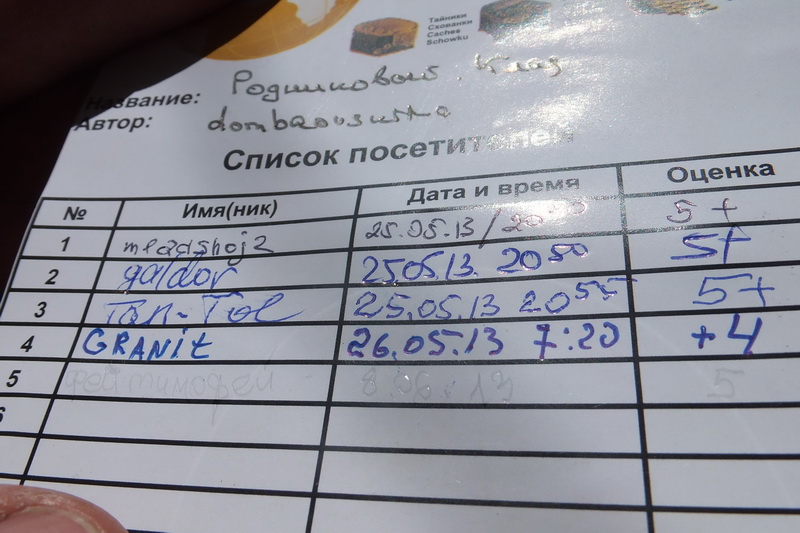 Тайники
Схованки
Caches
Schowku
Название: Родниковый Клад
Автор:
Список посетителей
№ Имя(ник) Дата и время Оценка
1 mladshoj2 25.05.13/20 5+
2 galdor 25.05.13. 20 50 5+
3 Тор-Тое 25.05.13 20 55 5+
4 GRANIt 26.05.13 7:20 +4
5 8.06.13 5
6